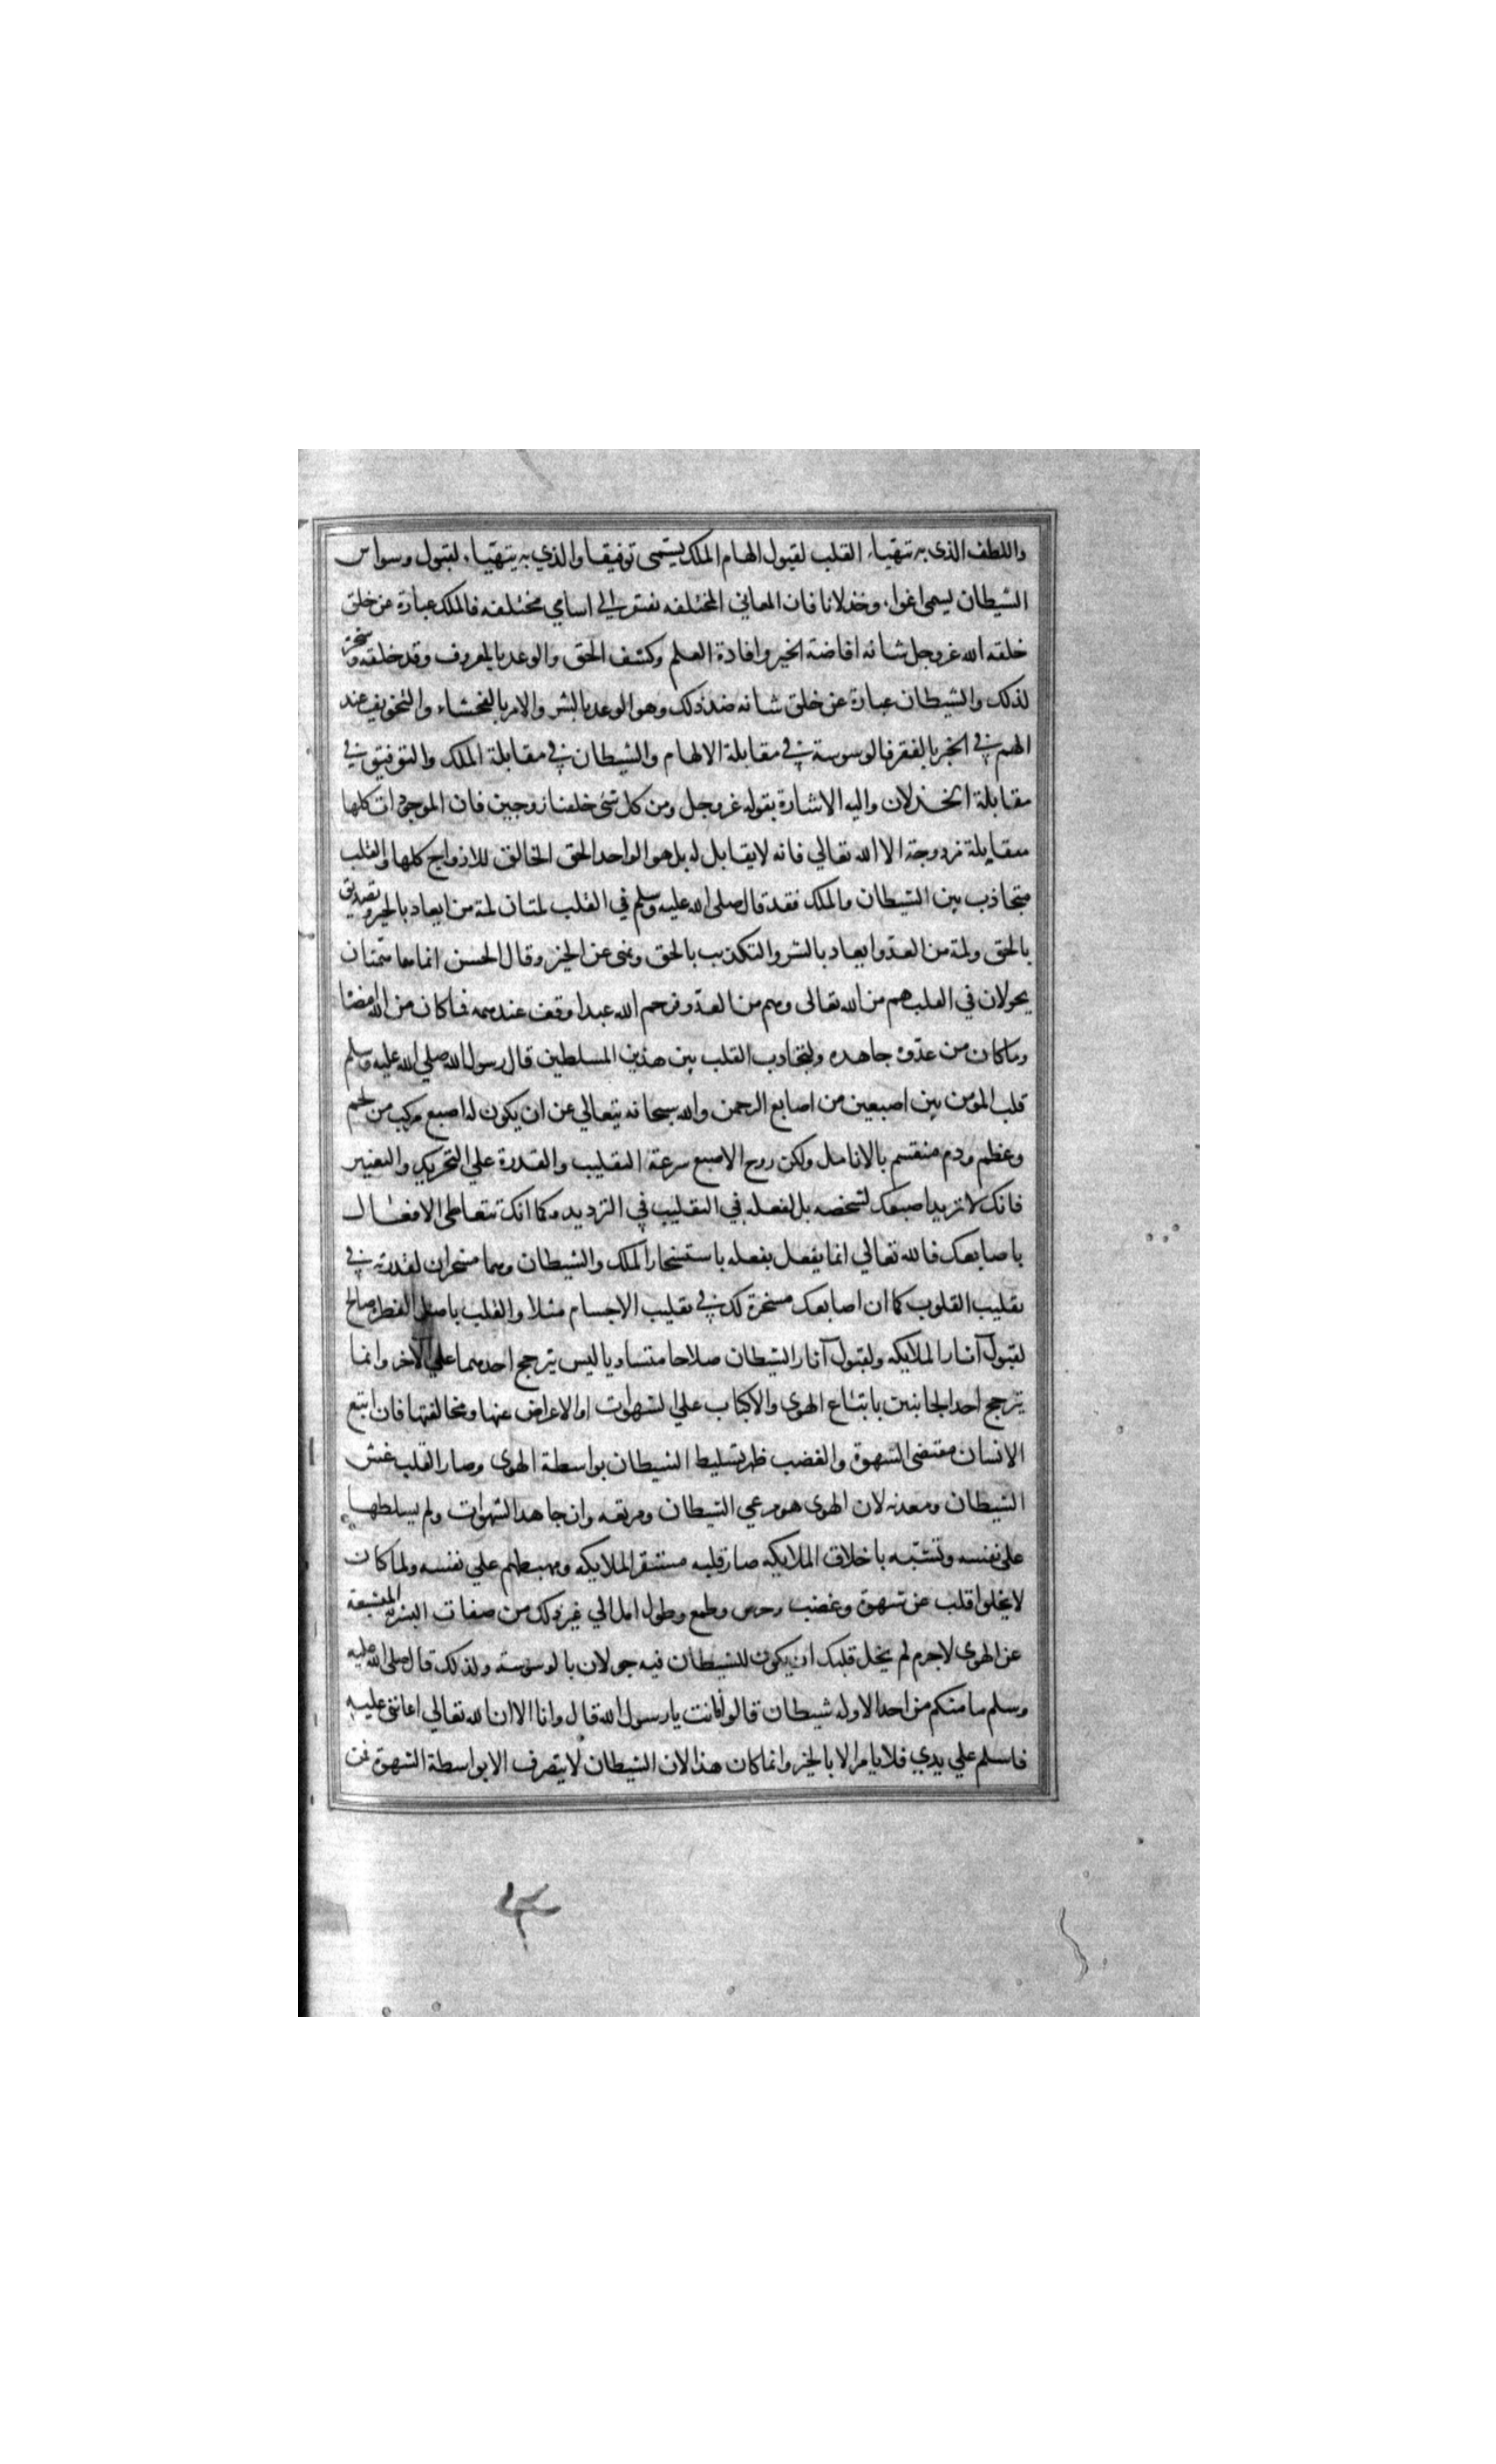 واللطف الذى به يتهيا، القلب لقبول الهام الملك يسمى توفيقا والذي به يتهيا، لقبول وسواس
الشيطان يسمى اغوا، وخذلانا فان المعاني المختلفه تفتقر الي اسامي مختلفه فالملك عبارة عن خلق
خلقه الله عزوجل شانه افاضة الخير وافادة العلم وكشف الحق والوعد بالمعروف وقد خلقه وسخره
لذلك والشيطان عبارة عن خلق شانه ضد ذلك وهو الوعد بالشر والامر بالفحشاء والتخويف عند
الهم في الخير بالفقر فالوسوسة في مقابلة الالهام والشيطان في مقابلة الملك والتوفيق في
مقابلة الخذلان واليه الاشارة بقوله عزوجل ومن كل شئ خلقنا زوجين فان الموجودات كلها
متقابلة مزدوجة الا الله تعالي فانه لا يقابل له بل هو الواحد الحق الخالق للازواج كلها والقلب
متجاذب بين الشيطان والملك فقد قال صلى الله عليه وسلم في القلب لمتان لمة من ايعاد بالخير وتصديق
بالحق ولمة من العدو ايعاد بالشر والتكذيب بالحق ونهى عن الخير وقال الحسن انما هما همتان
يجولان في القلب هم من الله تعالى وهم من العدو فرحم الله عبدا وقف عند همه فما كان من الله امضا
وما كان من عدوه جاهده ولتجاذب القلب بين هذين المسلطين قال رسول الله صلي الله عليه وسلم
قلب المومن بين اصبعين من اصابع الرحمن والله سبحانه يتعالي عن ان يكون له اصبع مركب من لحم
وعظم ودم منقسم بالانامل ولكن روح الاصبع سرعة التقليب والقدرة علي التحريك والتغيير
فانك لا تريد اصبعك لشخصه بل لفعله في التقليب في الترديد وكما انك تتعاطى الافعال
باصابعك فالله تعالي انما يفعل بفعله باستسخار الملك والشيطان وهما مسخران لقدرته في
تقليب القلوب كما ان اصابعك مسخرة لك في تقليب الاجسام مثلا والقلب باصل الفطرة صالح
لقبول آثار الملايكه ولقبول آثار الشيطان صلاحا متساويا ليس يترجح احدهما علي الآخر وانما
يترجح احد الجانبين باتباع الهوى والاكباب علي الشهوات او الاعراض عنها ومخالفتها فان اتبع
الانسان مقتضى الشهوة والغضب ظهر تسليط الشيطان بواسطة الهوى وصار القلب عش
الشيطان ومعدنه لان الهوى هو مرعي الشيطان ومرتعه وان جاهد الشهوات ولم يسلطها
على نفسه وتشبه باخلاق الملايكه صار قلبه مستقر الملايكه ومهبطهم علي نفسه ولما كان
لا يخلوا قلب عن شهوة وغضب وحرص وطمع وطول امل الي غير ذلك من صفات البشريه المتشعبة
عن الهوى لاجرم لم يخل قلبك ان يكون للشيطان فيه جولان بالوسوسة ولذلك قال صلى الله عليه
وسلم ما منكم من احد الا وله شيطان قالوا وانت يا رسول الله قال وانا الا ان الله تعالي اعانني عليه
فاسلم علي يدي فلا يامر الا بالخير وانما كان هذا لان الشيطان لا يتصرف الا بواسطة الشهوة فمن